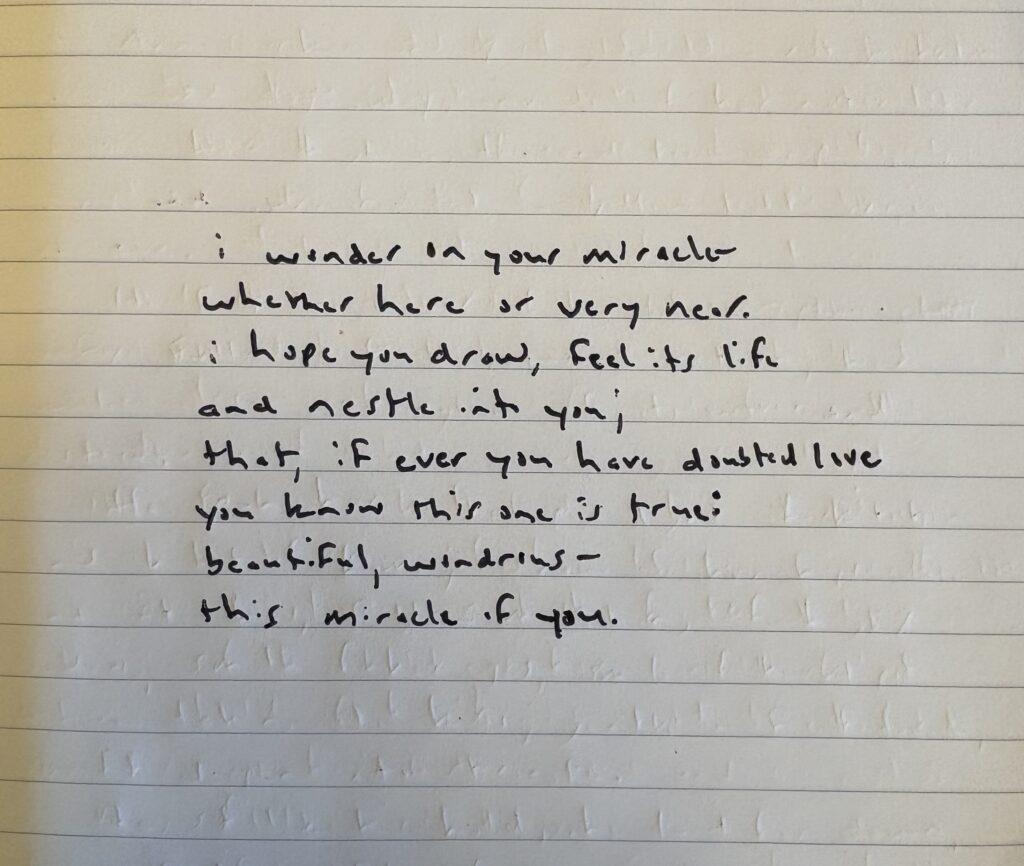 i wonder on your miracle
whether here or very near.
i hope you draw, feel its life
and nestle into you;
that, if ever you have doubted love
you know this one is true:
beautiful, wondrous –
this miracle of you.